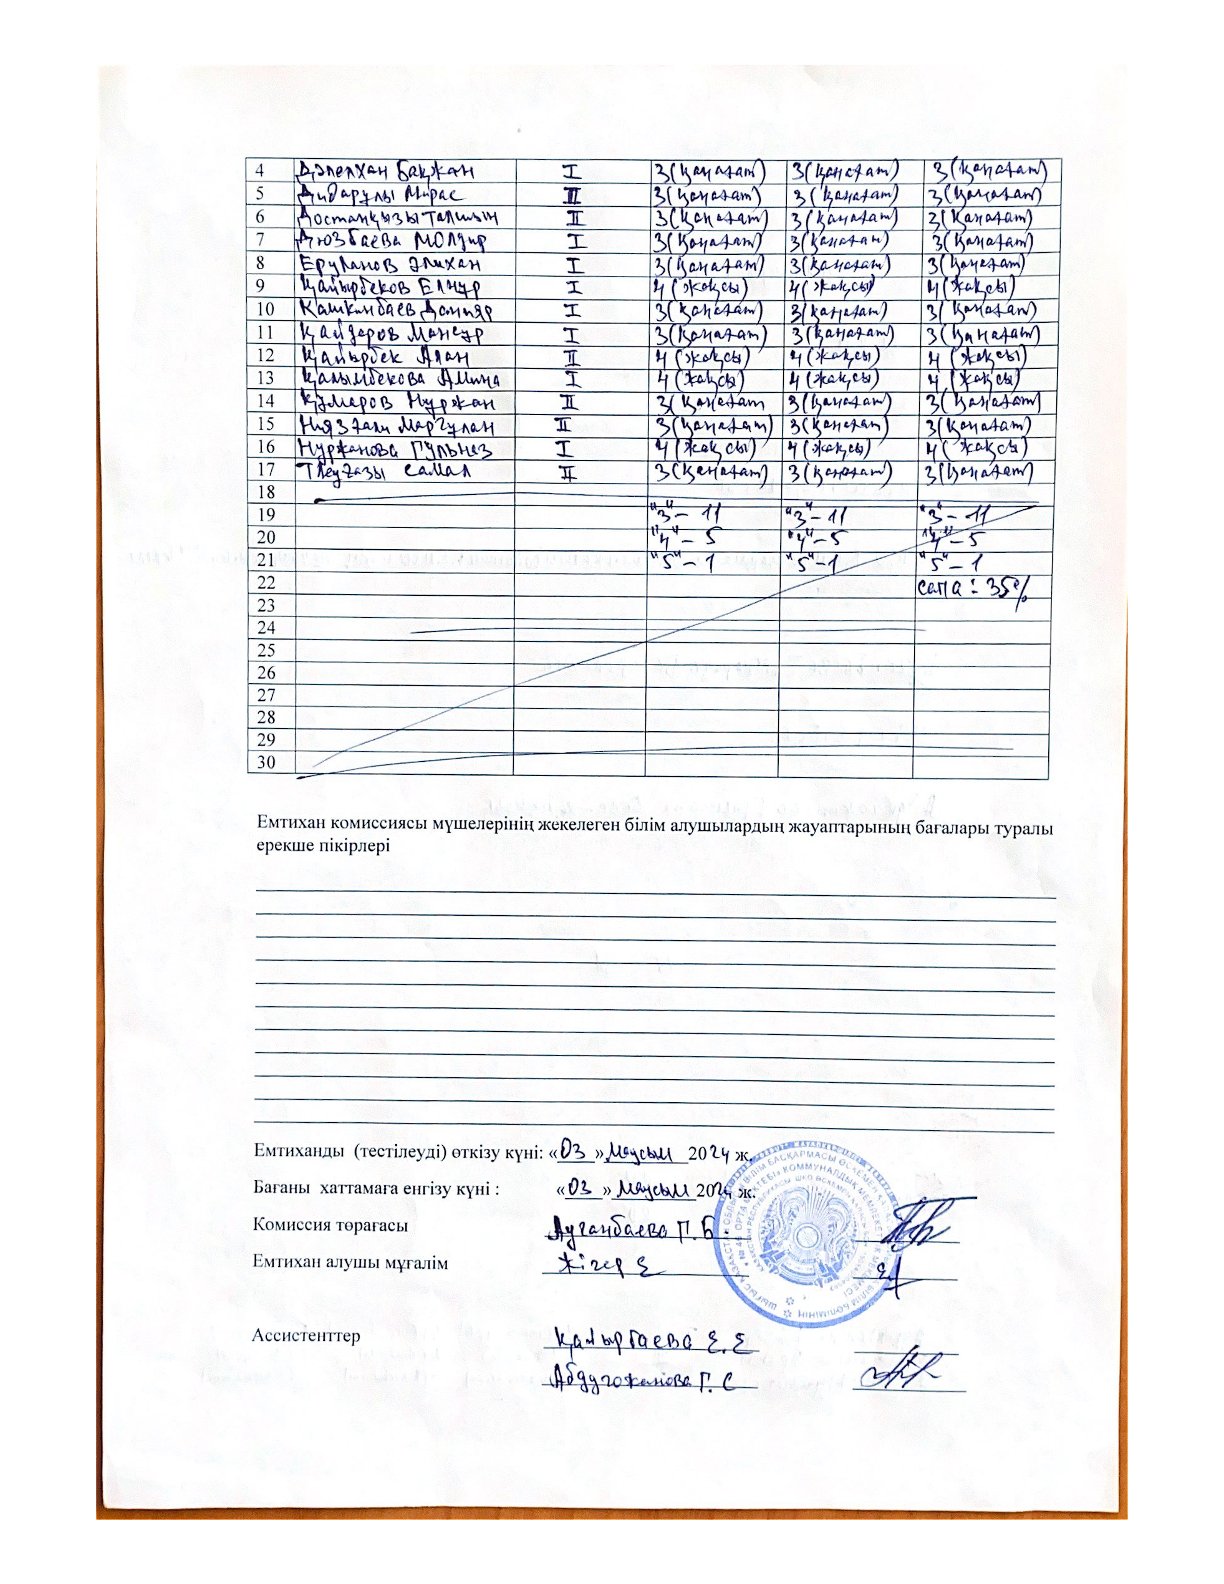 4 Дәлелхан Бақжан I 3(қанағат) 3(қанағат) 3(қанағат)
5 Дидарұлы Мирас II 3(қанағат) 3(қанағат) 3(қанағат)
6 Достанқызы Талшын II 3(қанағат) 3(қанағат) 3(қанағат)
7 Дюзбаева Молдир I 3(қанағат) 3(қанағат) 3(қанағат)
8 Ерупанов Әлихан I 3(қанағат) 3(қанағат) 3(қанағат)
9 Қайырбеков Елнұр I 4(жақсы) 4(жақсы) 4(жақсы)
10 Кашкинбаев Данияр I 3(қанағат) 3(қанағат) 3(қанағат)
11 Қайдаров Мансұр I 3(қанағат) 3(қанағат) 3(қанағат)
12 Қайырбек Алан II 4(жақсы) 4(жақсы) 4(жақсы)
13 Қалымбекова Амина I 4(жақсы) 4(жақсы) 4(жақсы)
14 Құмаров Нұржан II 3(қанағат 3(қанағат) 3(қанағат)
15 Ниязғали Марғұлан II 3(қанағат) 3(қанағат) 3(қанағат)
16 Нуржанова Гүлназ I 4(жақсы) 4(жақсы) 4(жақсы)
17 Тлеуғазы Самал II 3(қанағат) 3(қанағат) 3(қанағат)
18
19 "3"- 11 "3"- 11 "3"- 11
20 "4"- 5 "4"- 5 "4"- 5
21 "5"- 1 "5"-1 "5"- 1
22 сапа: 35%
23
24
25
26
27
28
29
30
Емтихан комиссиясы мүшелерінің жекелеген білім алушылардың жауаптарының бағалары туралы
ерекше пікірлері
Емтиханды (тестілеуді) өткізу күні: «03» Маусым 2024 ж.
Бағаны хаттамаға енгізу күні : «03» Маусым 2024 ж.
Комиссия төрағасы Ауганбаева Г.Б.
Емтихан алушы мұғалім Жігер Е
Ассистенттер Қайырғаева Е.Е
Абдугожанова Г.С